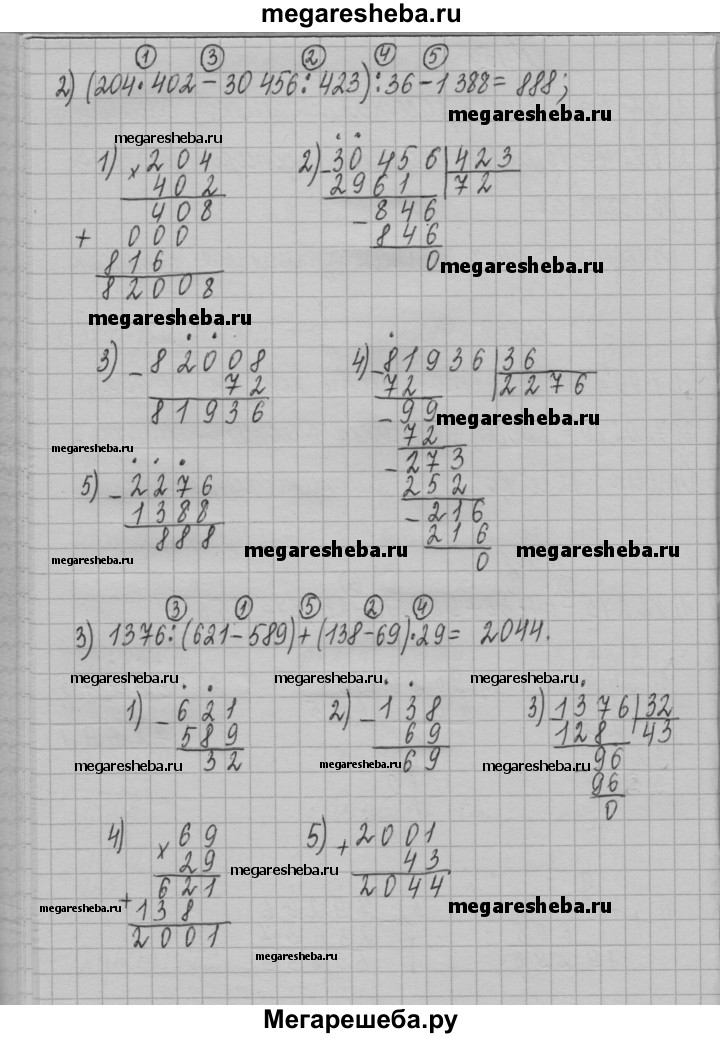 megaresheba.ru
1 3 2 4 5
2) (204·402-30456:423):36-1388=888;
megaresheba.ru
megaresheba.ru
1) × 204
402
408
+ 000
816
82008
megaresheba.ru
2) - 30456 423
2961 72
- 846
846
0 megaresheba.ru
3) - 82008
72
81936
megaresheba.ru
4) - 81936 36
72 2276
- 99 megaresheba.ru
72
- 273
252
- 216
216
0
5) - 2276
1388
888
megaresheba.ru
megaresheba.ru
megaresheba.ru
3 1 5 2 4
3) 1376:(621-589)+(138-69)·29= 2044.
megaresheba.ru megaresheba.ru megaresheba.ru
1) - 621
589
32
megaresheba.ru
2) - 138
69
69
megaresheba.ru
3) - 1376 32
128 43
96
96
0
megaresheba.ru
4) × 69
29
621
+ 138
2001
megaresheba.ru
megaresheba.ru
5) + 2001
43
2044
megaresheba.ru
megaresheba.ru
Мегарешеба.ру